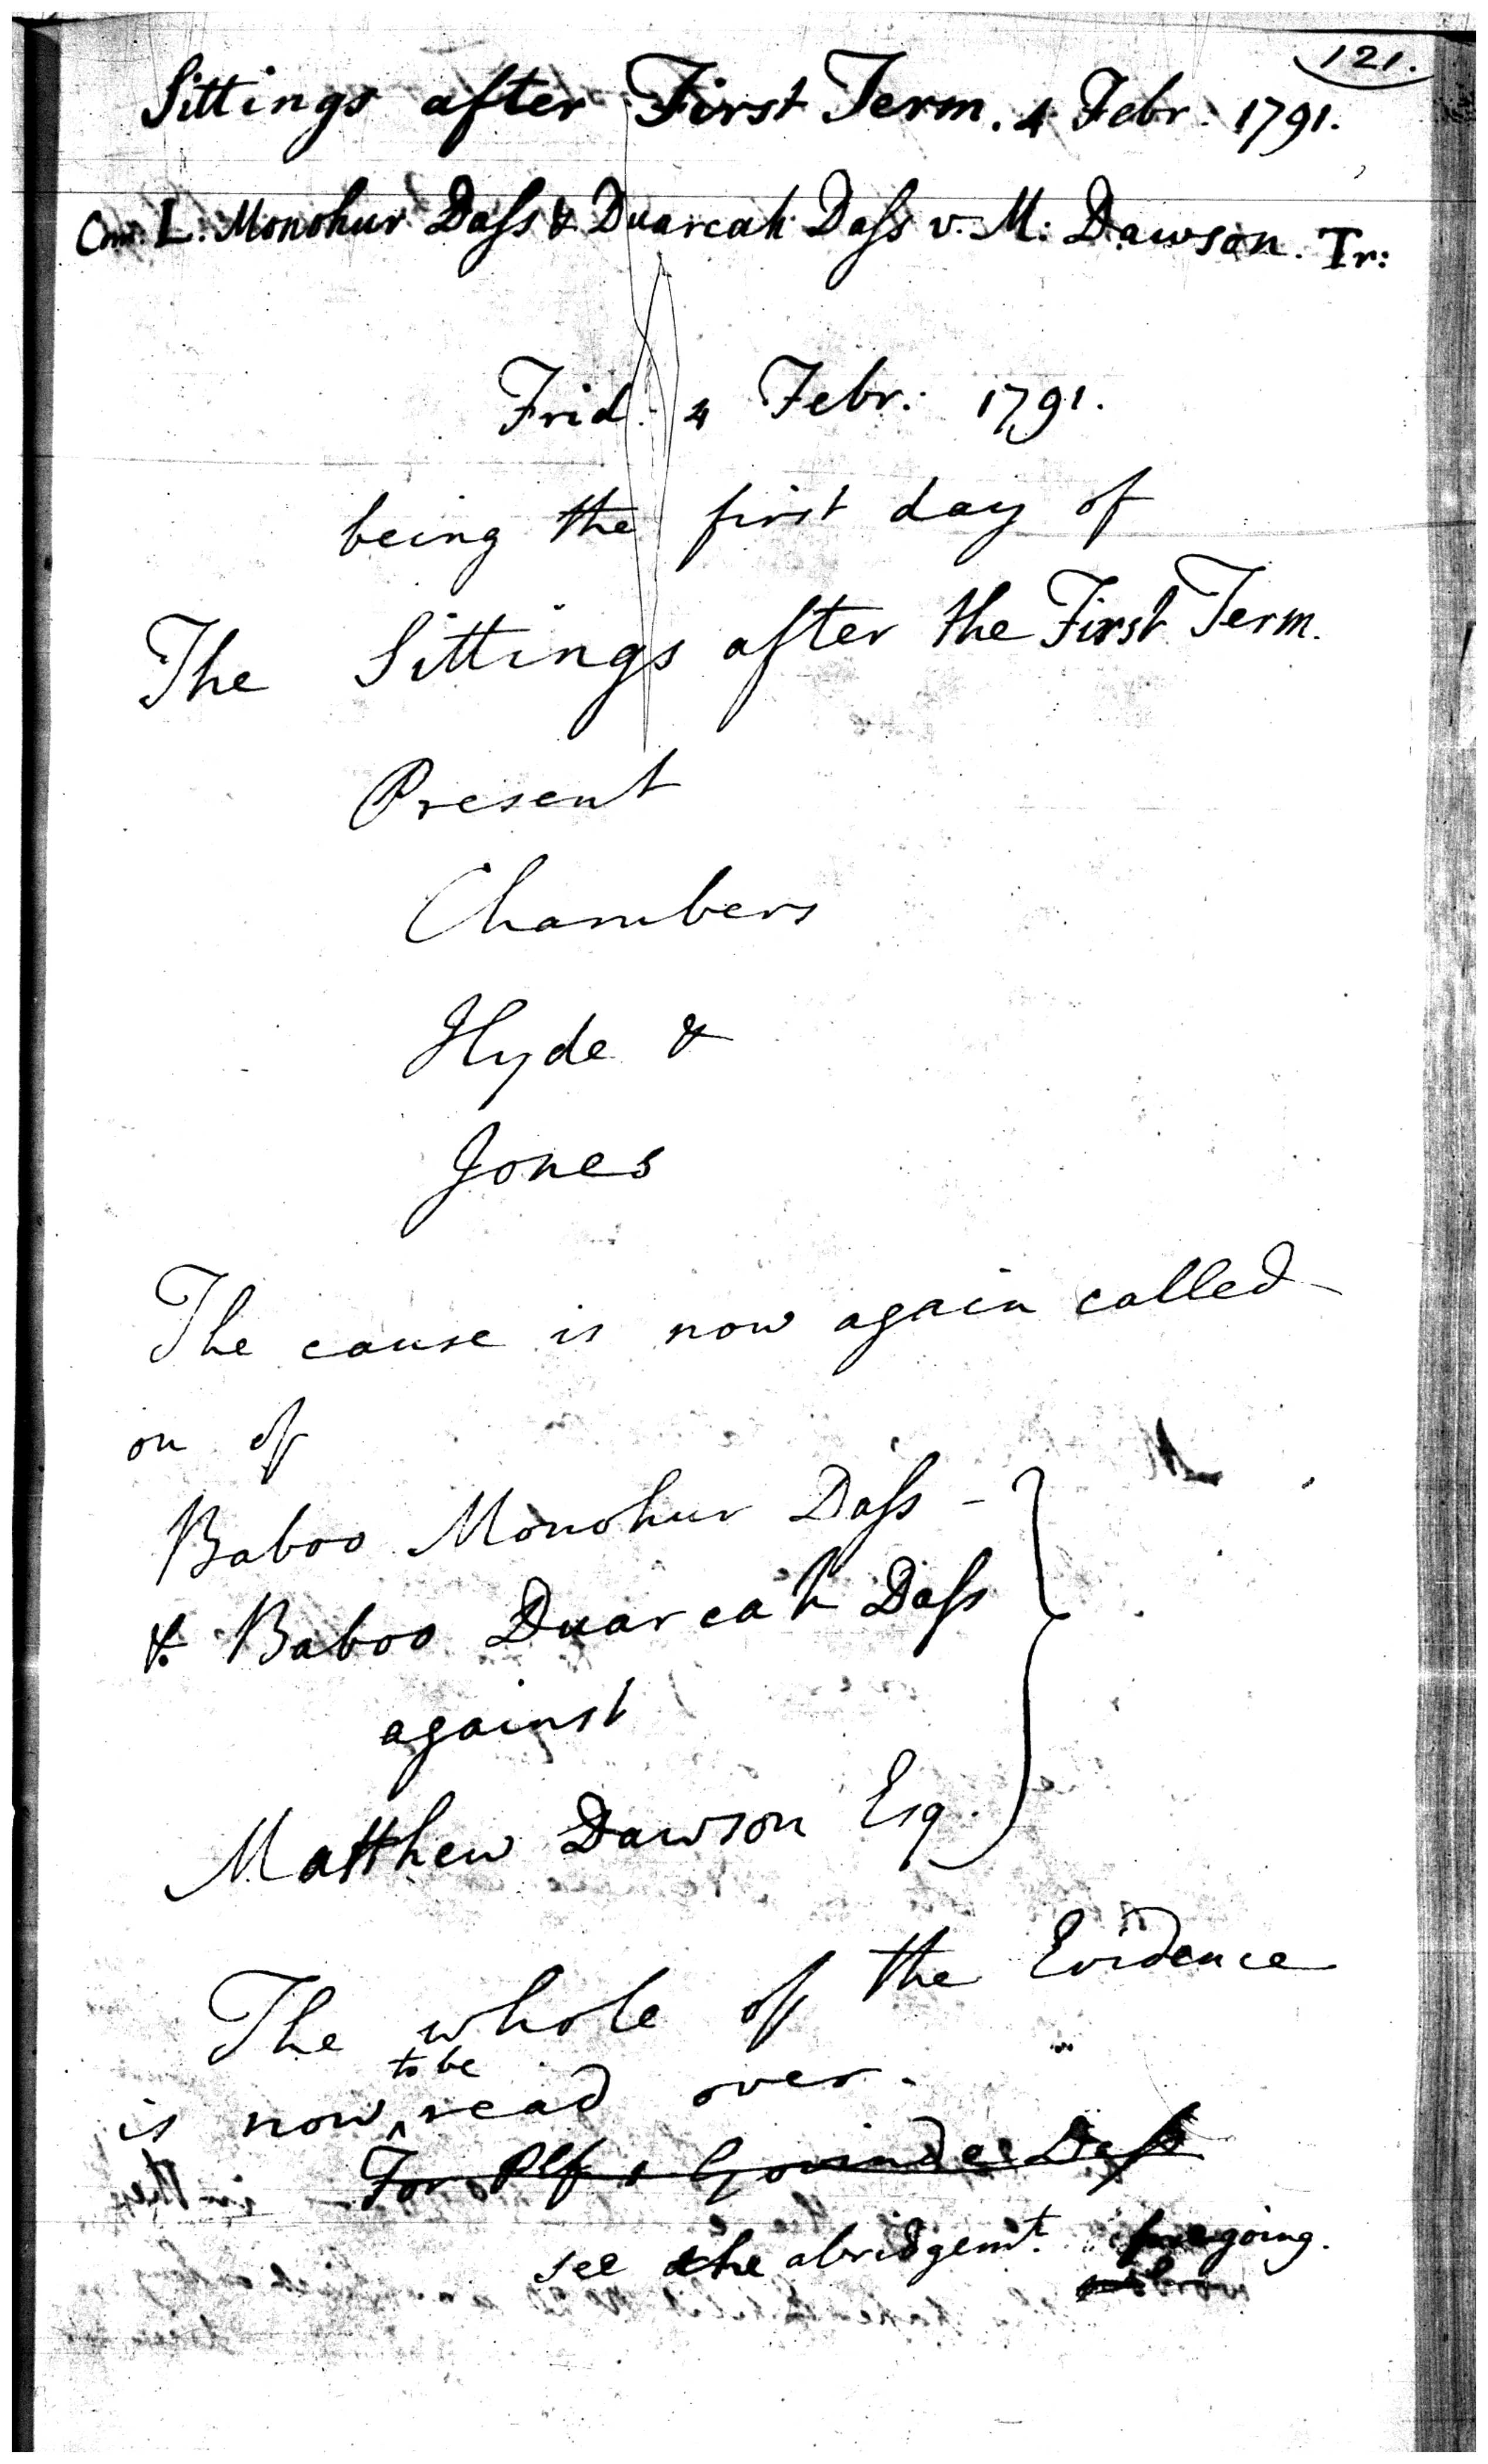 121.
Sittings after First Term. 4 Febr: 1791.
L. Monohur Dass & Duarcah Dass v. M: Dawson. Tr:
Frid: 4 Febr: 1791.
being the first day of
The Sittings after the First Term.
Present
Chambers
Hyde &
Jones
The cause is now again called
on of
Baboo Monohur Dass -
&. Baboo Duarcah Dass
against
Matthew Dawson Esq.
The whole of the Evidence
is now to be read over.
For Plf Govindee Dass
see the abridgemt. foregoing.